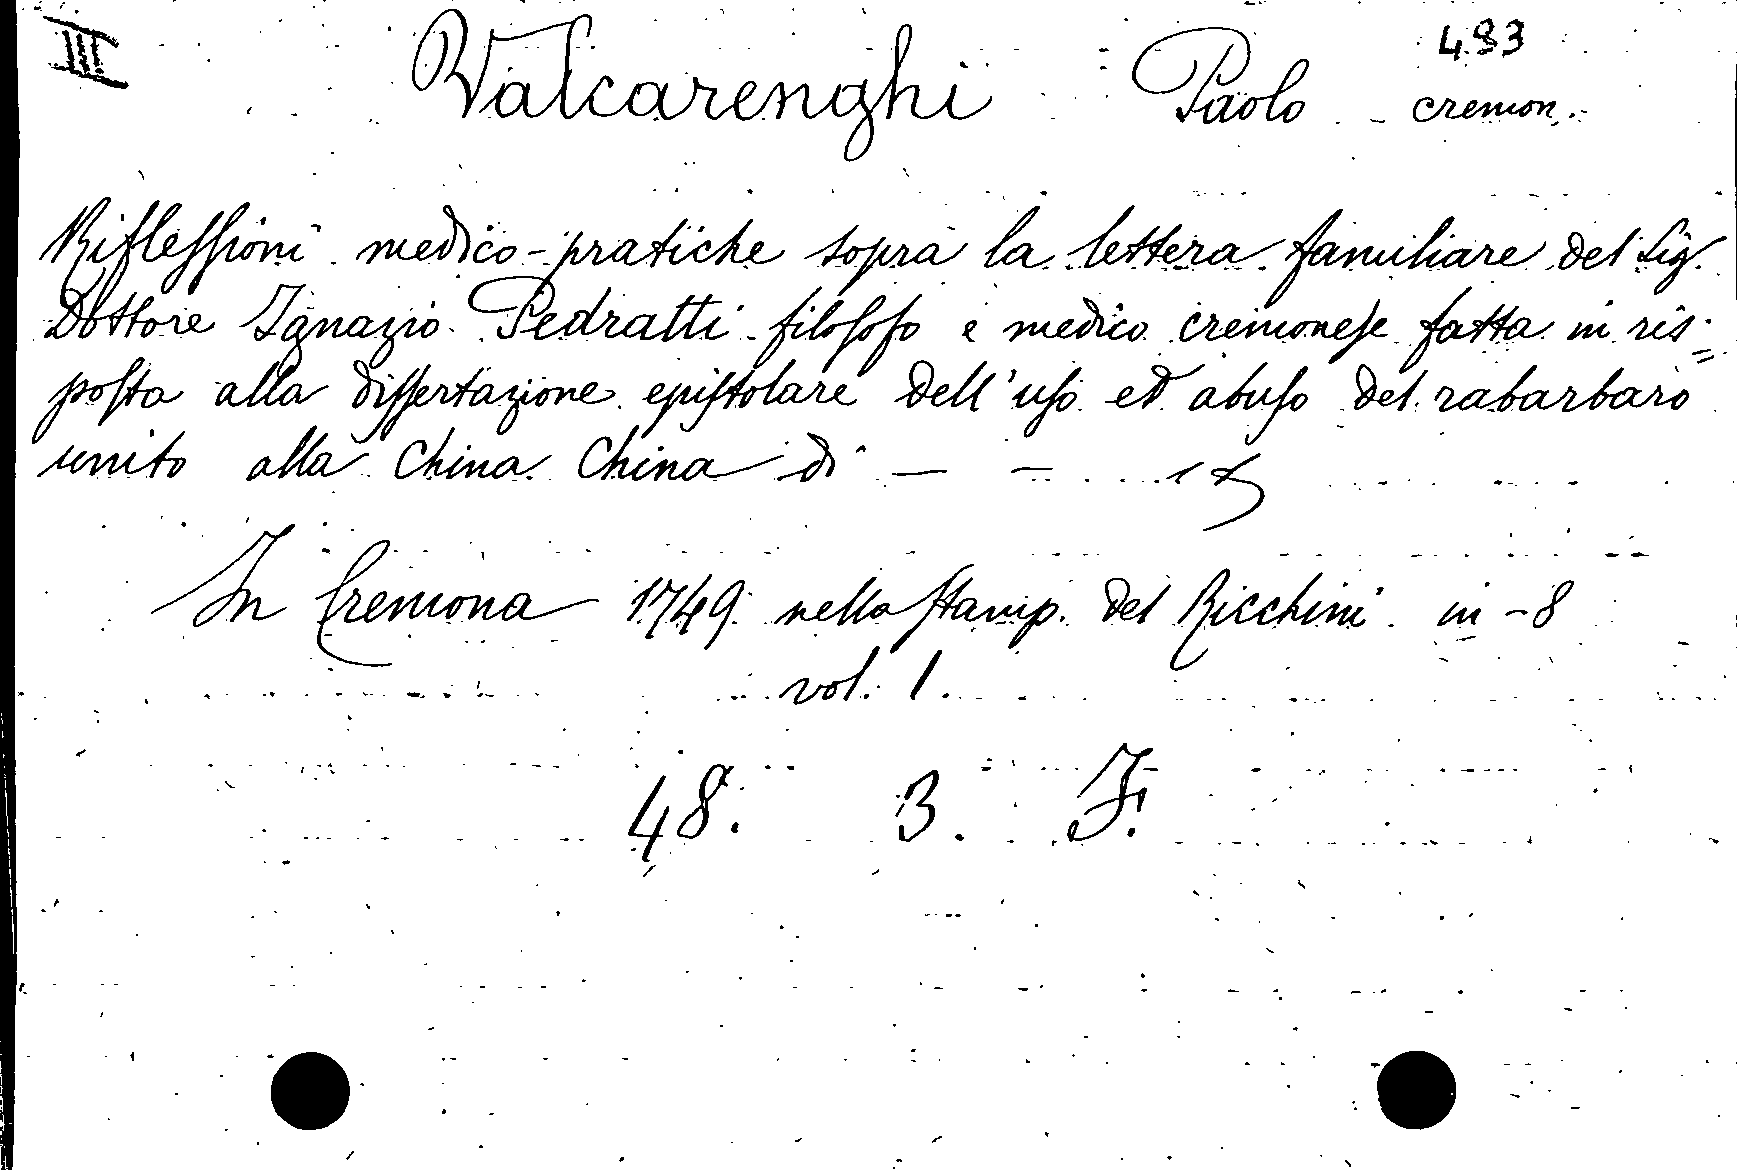 III
483
Valcarenghi Paolo - cremon.
Riflessioni medico-pratiche sopra la lettera familiare del Sig.
Dottore Ignazio Pedratti filosofo e medico cremonese fatta in ris=
posta alla dissertazione epistolare dell'uso ed abuso del rabarbaro
unito alla China China di — —
In Cremona 1749 nella Stamp. del Ricchini in-8
vol. 1.
48. 3. F.